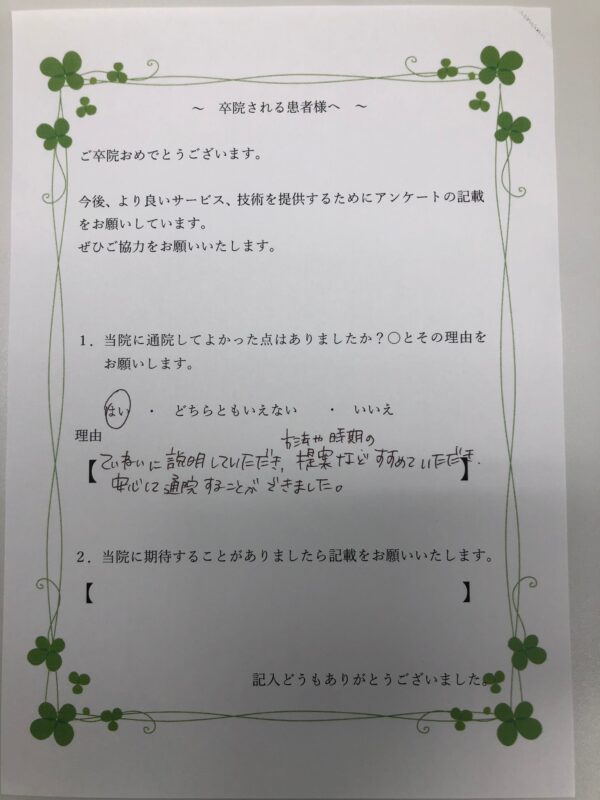 ～ 卒院される患者様へ ～
ご卒院おめでとうございます。
今後、より良いサービス、技術を提供するためにアンケートの記載
をお願いしています。
ぜひご協力をお願いいたします。
１．当院に通院してよかった点はありましたか？〇とその理由を
お願いします。
はい ・ どちらともいえない ・ いいえ
理由
や時期の
【ていねいに説明していただき、提案などすすめていただき、】
安心して通院することができました。
２．当院に期待することがありましたら記載をお願いいたします。
【 】
記入どうもありがとうございました。